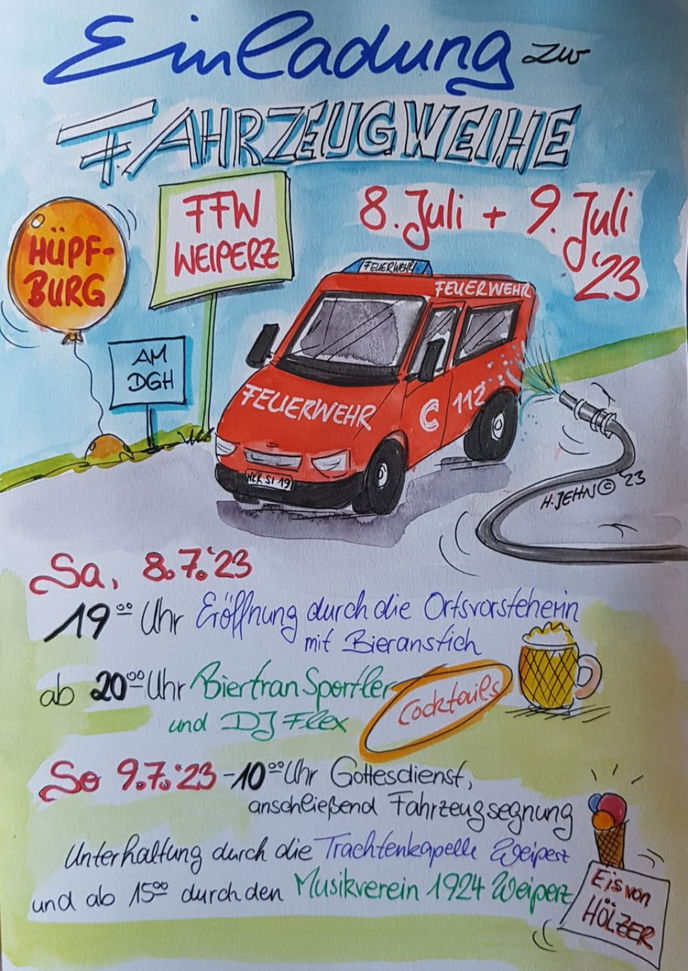 Einladung zur
FAHRZEUGWEIHE
FFW
WEIPERZ
8. Juli + 9. Juli
'23
HÜPF-
BURG
AM
DGH
FEUERWEHR
FEUERWEHR
FEUERWEHR
C 112
MKK SI 19
H. JEHN © '23
Sa, 8.7.'23
19⁰⁰ Uhr Eröffnung durch die Ortsvorsteherin
mit Bieranstich
ab 20⁰⁰ Uhr BiertranSportler
und DJ Flex
Cocktails
So 9.7.'23 - 10⁰⁰ Uhr Gottesdienst,
anschließend Fahrzeugsegnung
Unterhaltung durch die Trachtenkapelle Weiperz
und ab 15⁰⁰ durch den Musikverein 1924 Weiperz
Eis von
HÖLZER